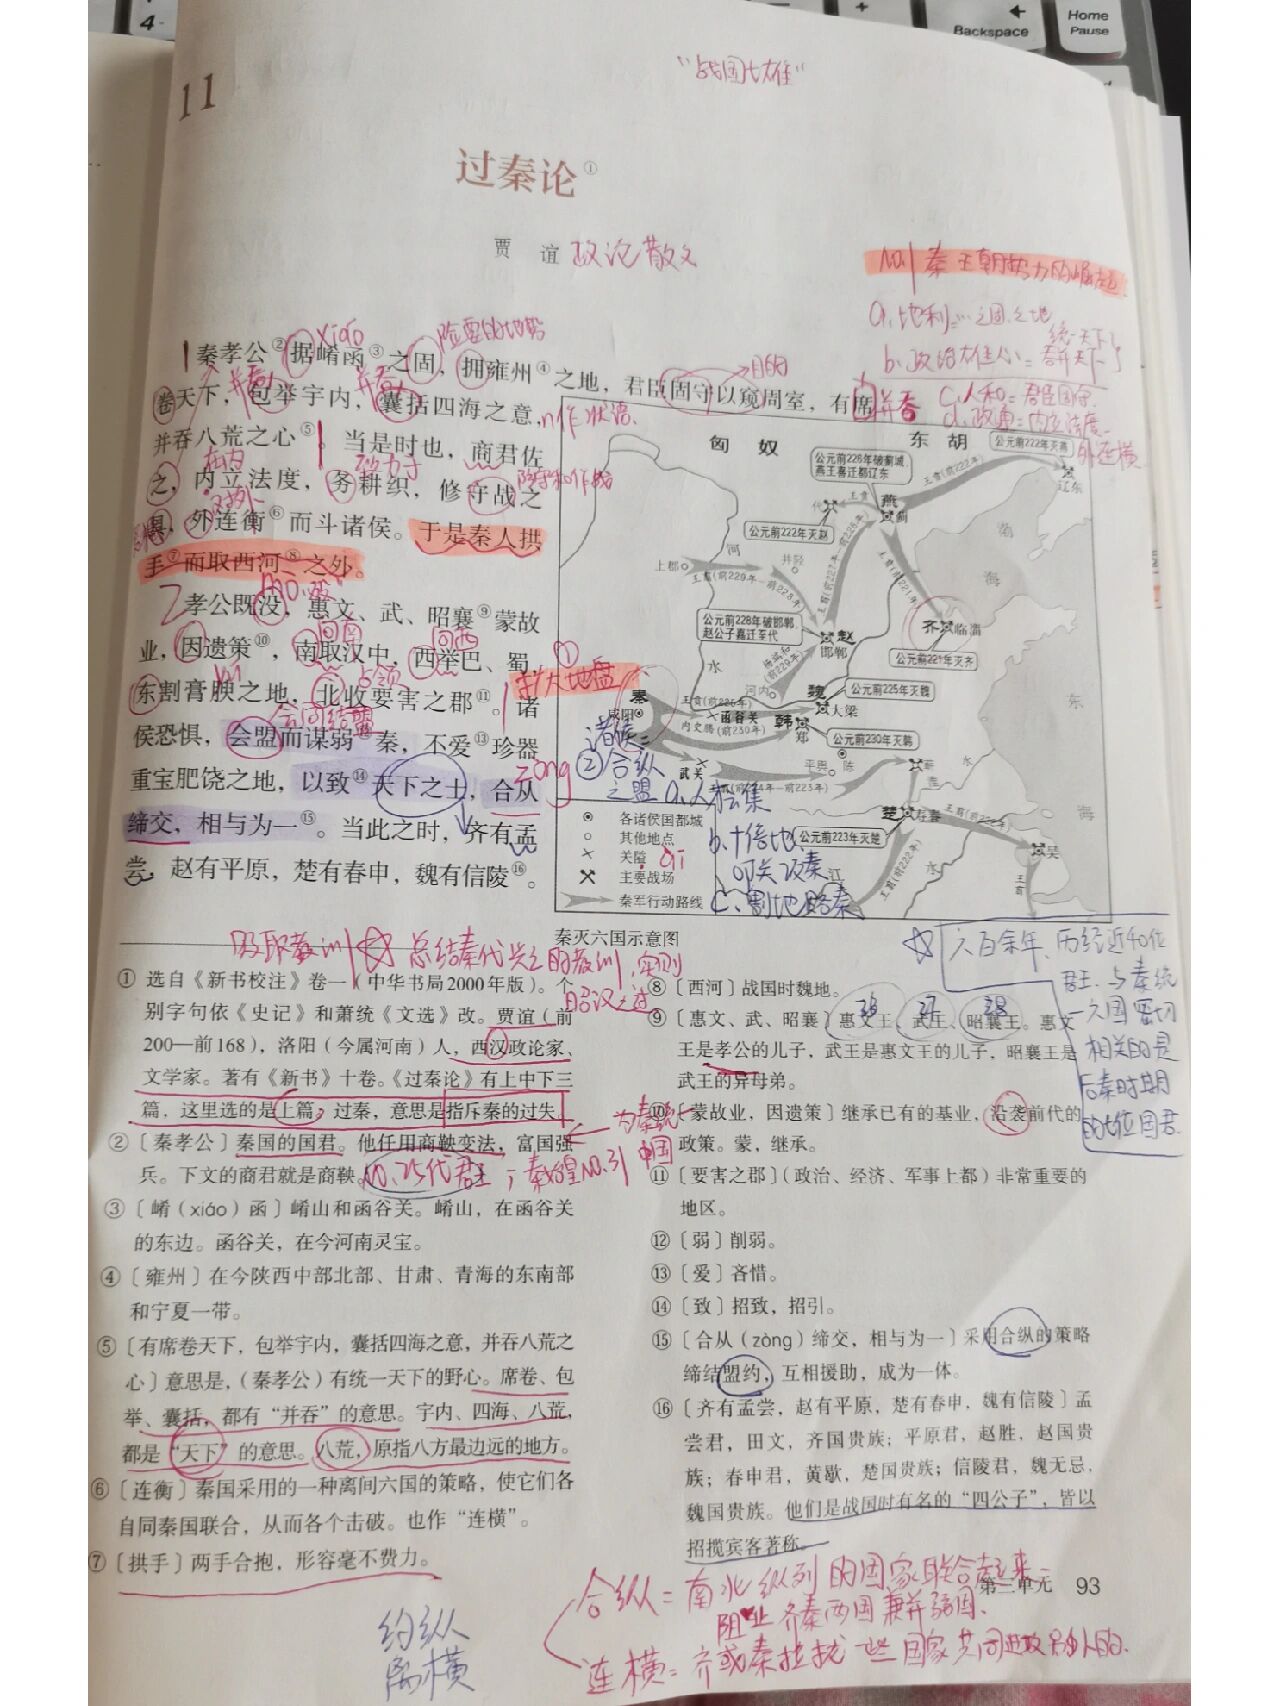 Backspace
Home
Pause
"战国七雄"
11
过秦论①
贾 谊 政论散文
NO.1 秦王朝势力的崛起
a.地利=…之固.之地
b.政治雄心=吞并天下
统一天下
c.人和=君臣固守
d.政通=内立法度
外连横
xiáo
险要的地势
目的
秦孝公②据崤函③之固，拥雍州④之地，君臣固守以窥周室，有席
并吞
并吞
并吞
卷天下，包举宇内，囊括四海之意，
n作状语
并吞八荒之心⑤。当是时也，商君佐
在内
致力于
防守和作战
之，内立法度，务耕织，修守战之
对外
具，外连衡⑥而斗诸侯。于是秦人拱
手⑦而取西河⑧之外。
孝公既没，惠文、武、昭襄⑨蒙故
向南
向西
业，因遗策⑩，南取汉中，西举巴、蜀，
占领
①扩大地盘
东割膏腴之地，北收要害之郡⑪。诸
会同结盟
侯恐惧，会盟而谋弱⑫秦，不爱⑬珍器
zòng
重宝肥饶之地，以致⑭天下之士，合从
缔交，相与为一⑮。当此之时，齐有孟
尝，赵有平原，楚有春申，魏有信陵⑯。
匈奴
东胡
公元前222年灭燕
公元前226年破蓟城，
燕王喜迁都辽东
王贲(前222年)
辽东
燕
蓟
代
公元前222年灭赵
渤
海
河
井陉
上郡
王翦(前229年—前228年)
公元前228年破邯郸
赵公子嘉迁至代
赵
邯郸
齐
临淄
公元前221年灭齐
水
河内
东
海
秦
咸阳
函谷关
内史腾(前230年)
魏
大梁
公元前225年灭魏
韩
郑
公元前230年灭韩
武关
平舆
陈
蕲
淮
水
楚
寿春
公元前223年灭楚
吴
江
水
诸侯=
②合纵
之盟 a.人才云集
b.十倍地、
叩关攻秦
c.割地赂秦
各诸侯国都城
其他地点
关隘
ài
主要战场
秦军行动路线
秦灭六国示意图
吸取教训
总结秦代兴亡的教训，实则
昭汉之过
六百余年、历经近40位
君王.与秦统
一六国密切
相关的是
后秦时期
的七位国君.
①选自《新书校注》卷一（中华书局2000年版）。个
别字句依《史记》和萧统《文选》改。贾谊（前
200—前168），洛阳（今属河南）人，西汉政论家、
文学家。著有《新书》十卷。《过秦论》有上中下三
篇，这里选的是上篇。过秦，意思是指斥秦的过失。
②〔秦孝公〕秦国的国君。他任用商鞅变法，富国强
兵。下文的商君就是商鞅。
NO.25代君王；秦始皇NO.31
③〔崤（xiáo）函〕崤山和函谷关。崤山，在函谷关
的东边。函谷关，在今河南灵宝。
④〔雍州〕在今陕西中部北部、甘肃、青海的东南部
和宁夏一带。
⑤〔有席卷天下，包举宇内，囊括四海之意，并吞八荒之
心〕意思是，（秦孝公）有统一天下的野心。席卷、包
举、囊括，都有“并吞”的意思。宇内、四海、八荒，
都是“天下”的意思。八荒，原指八方最边远的地方。
⑥〔连衡〕秦国采用的一种离间六国的策略，使它们各
自同秦国联合，从而各个击破。也作“连横”。
⑦〔拱手〕两手合抱，形容毫不费力。
⑧〔西河〕战国时魏地。
26 27 28
⑨〔惠文、武、昭襄〕惠文王、武王、昭襄王。惠文
王是孝公的儿子，武王是惠文王的儿子，昭襄王是
武王的异母弟。
⑩〔蒙故业，因遗策〕继承已有的基业，沿袭前代的
政策。蒙，继承。
⑪〔要害之郡〕（政治、经济、军事上都）非常重要的
地区。
⑫〔弱〕削弱。
⑬〔爱〕吝惜。
⑭〔致〕招致，招引。
⑮〔合从（zòng）缔交，相与为一〕采用合纵的策略
缔结盟约，互相援助，成为一体。
⑯〔齐有孟尝，赵有平原，楚有春申，魏有信陵〕孟
尝君，田文，齐国贵族；平原君，赵胜，赵国贵
族；春申君，黄歇，楚国贵族；信陵君，魏无忌，
魏国贵族。他们是战国时有名的“四公子”，皆以
招揽宾客著称。
第三单元 93
合纵=南北纵列的国家联合起来=
阻止齐秦两国兼并弱国.
连横=齐或秦拉拢一些国家共同进攻
约纵
离横